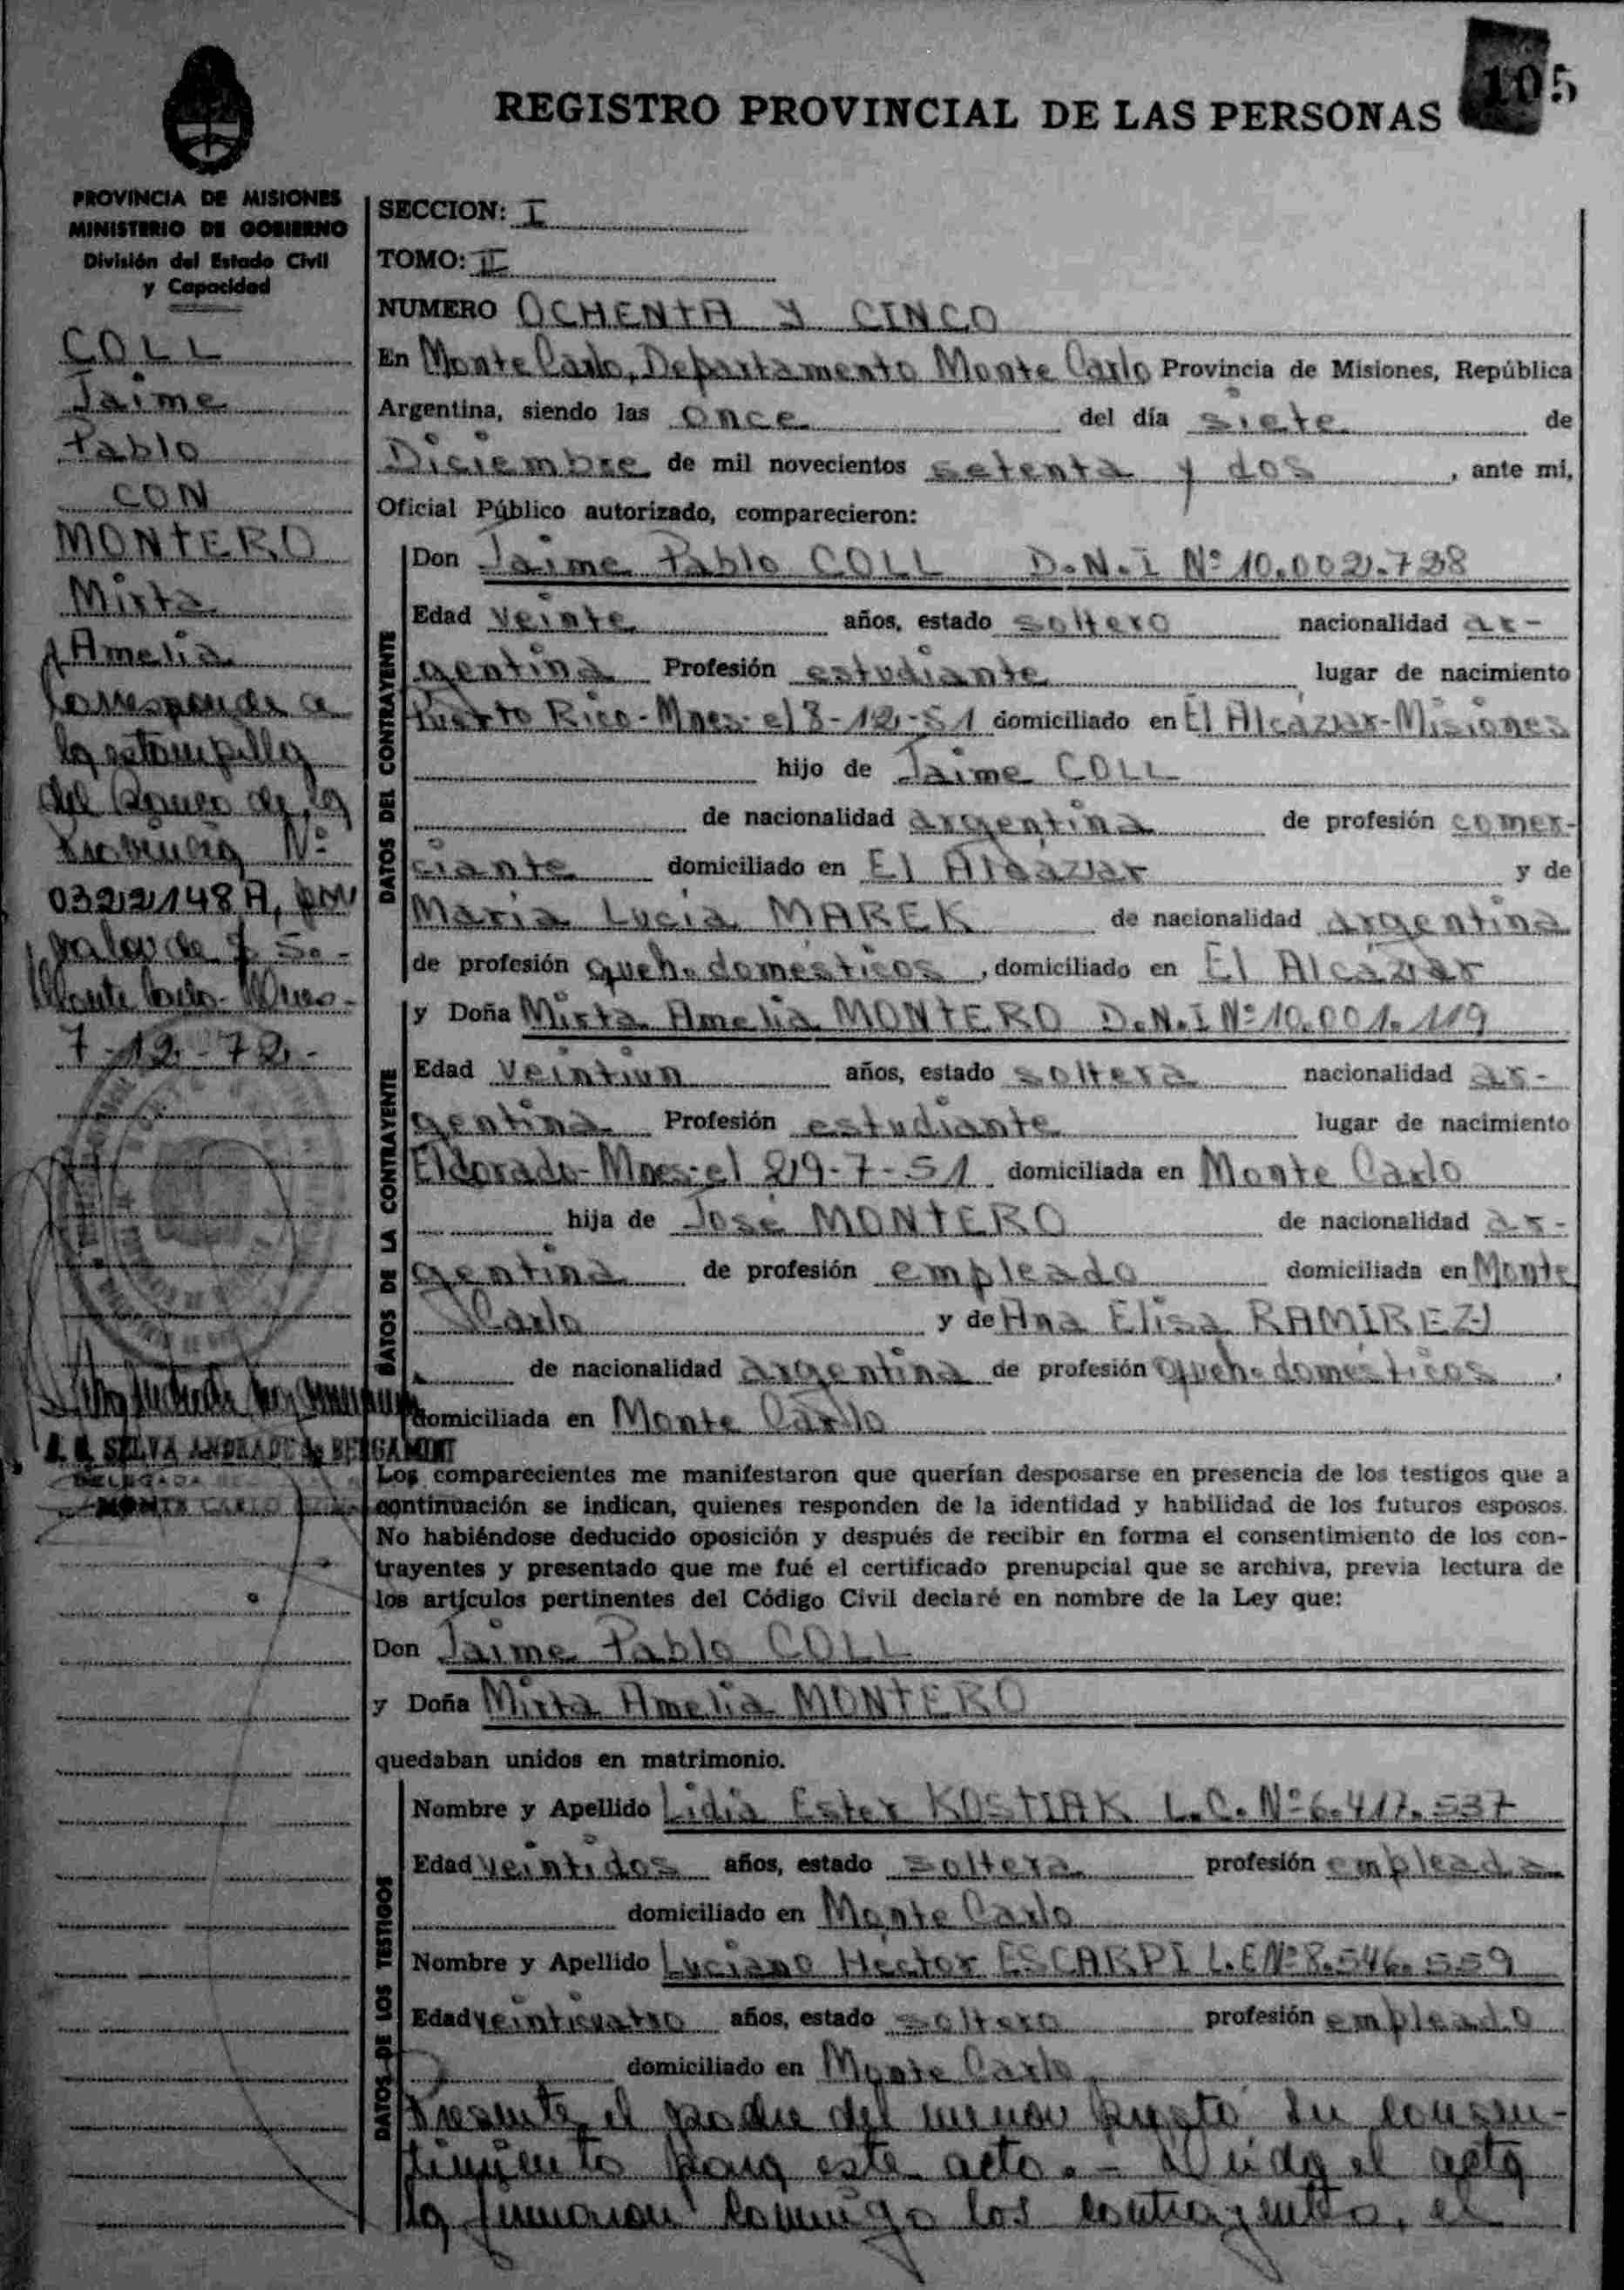 105
REGISTRO PROVINCIAL DE LAS PERSONAS
PROVINCIA DE MISIONES
MINISTERIO DE GOBIERNO
División del Estado Civil
y Capacidad
COLL
Jaime
Pablo
CON
MONTERO
Mirta
Amelia
Corresponde a
la estampilla
del Banco de la
Provincia Nº
0322148 A, por
valor de $ 50-
Monte Carlo - Mnes -
7-12-72-
SELVA ANDRADE de BERGAMINI
DELEGADA
MONTE CARLO
SECCION: I
TOMO: II
NUMERO OCHENTA Y CINCO
En Monte Carlo, Departamento Monte Carlo Provincia de Misiones, República
Argentina, siendo las once del día siete de
Diciembre de mil novecientos setenta y dos, ante mi,
Oficial Público autorizado, comparecieron:
DATOS DEL CONTRAYENTE
Don Jaime Pablo COLL D.N.I Nº 10.002.738
Edad veinte años, estado soltero nacionalidad ar-
gentina Profesión estudiante lugar de nacimiento
Puerto Rico-Mnes-el 8-12-51 domiciliado en El Alcázar-Misiones
hijo de Jaime COLL
de nacionalidad argentina de profesión comer-
ciante domiciliado en El Alcázar y de
María Lucía MAREK de nacionalidad argentina
de profesión queh. domésticos, domiciliado en El Alcázar
DATOS DE LA CONTRAYENTE
y Doña Mirta Amelia MONTERO D.N.I Nº 10.001.119
Edad veintiun años, estado soltera nacionalidad ar-
gentina Profesión estudiante lugar de nacimiento
Eldorado-Mnes-el 29-7-51 domiciliada en Monte Carlo
hija de José MONTERO de nacionalidad ar-
gentina de profesión empleado domiciliada en Monte
Carlo y de Ana Elisa RAMIREZ
de nacionalidad argentina de profesión queh. domésticos,
domiciliada en Monte Carlo
Los comparecientes me manifestaron que querían desposarse en presencia de los testigos que a
continuación se indican, quienes responden de la identidad y habilidad de los futuros esposos.
No habiéndose deducido oposición y después de recibir en forma el consentimiento de los con-
trayentes y presentado que me fué el certificado prenupcial que se archiva, previa lectura de
los artículos pertinentes del Código Civil declaré en nombre de la Ley que:
Don Jaime Pablo COLL
y Doña Mirta Amelia MONTERO
quedaban unidos en matrimonio.
DATOS DE LOS TESTIGOS
Nombre y Apellido Lidia Ester KOSTIAK L.C. Nº 6.417.537
Edad veintidos años, estado soltera profesión empleada
domiciliado en Monte Carlo
Nombre y Apellido Luciano Héctor ESCARPI L.E Nº 8.546.559
Edad veinticuatro años, estado soltero profesión empleado
domiciliado en Monte Carlo
Presente el padre del menor presto su consen-
timiento para este acto. - Leida el acta
la firmaron conmigo los contrayentes, el